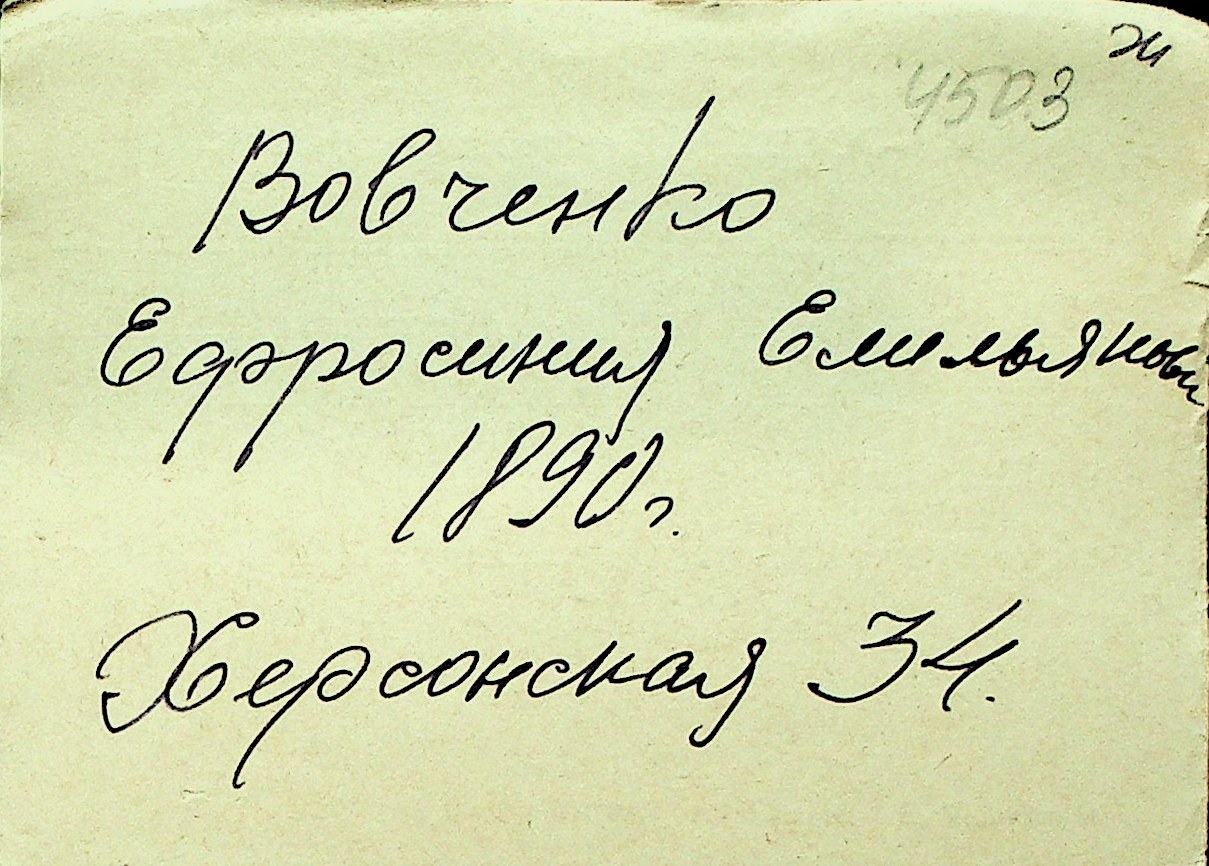 ж
4503
Вовченко
Ефросиния Емельянов
1890г.
Херсонская 34.